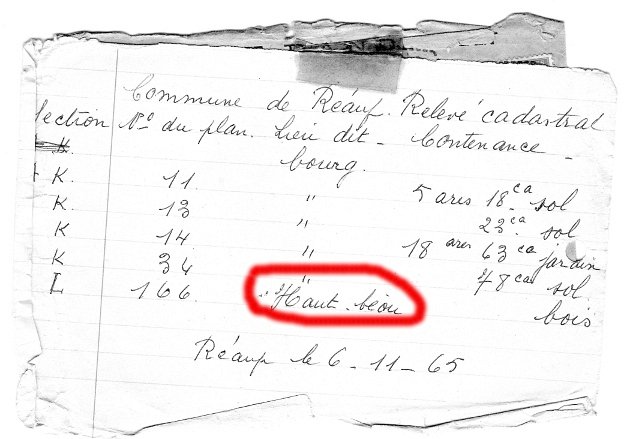 Commune de Réaup. Relevé cadastral
Section Nº du plan. Lieu dit - Contenance -
bourg.
K 11 " 5 ares 18 ca sol
K 13 " 23 ca sol
K 14 " 18 ares 63 ca jardin
K 34 " 48 ca sol.
I 166 " Haut-béou bois
Réaup le 6-11-65